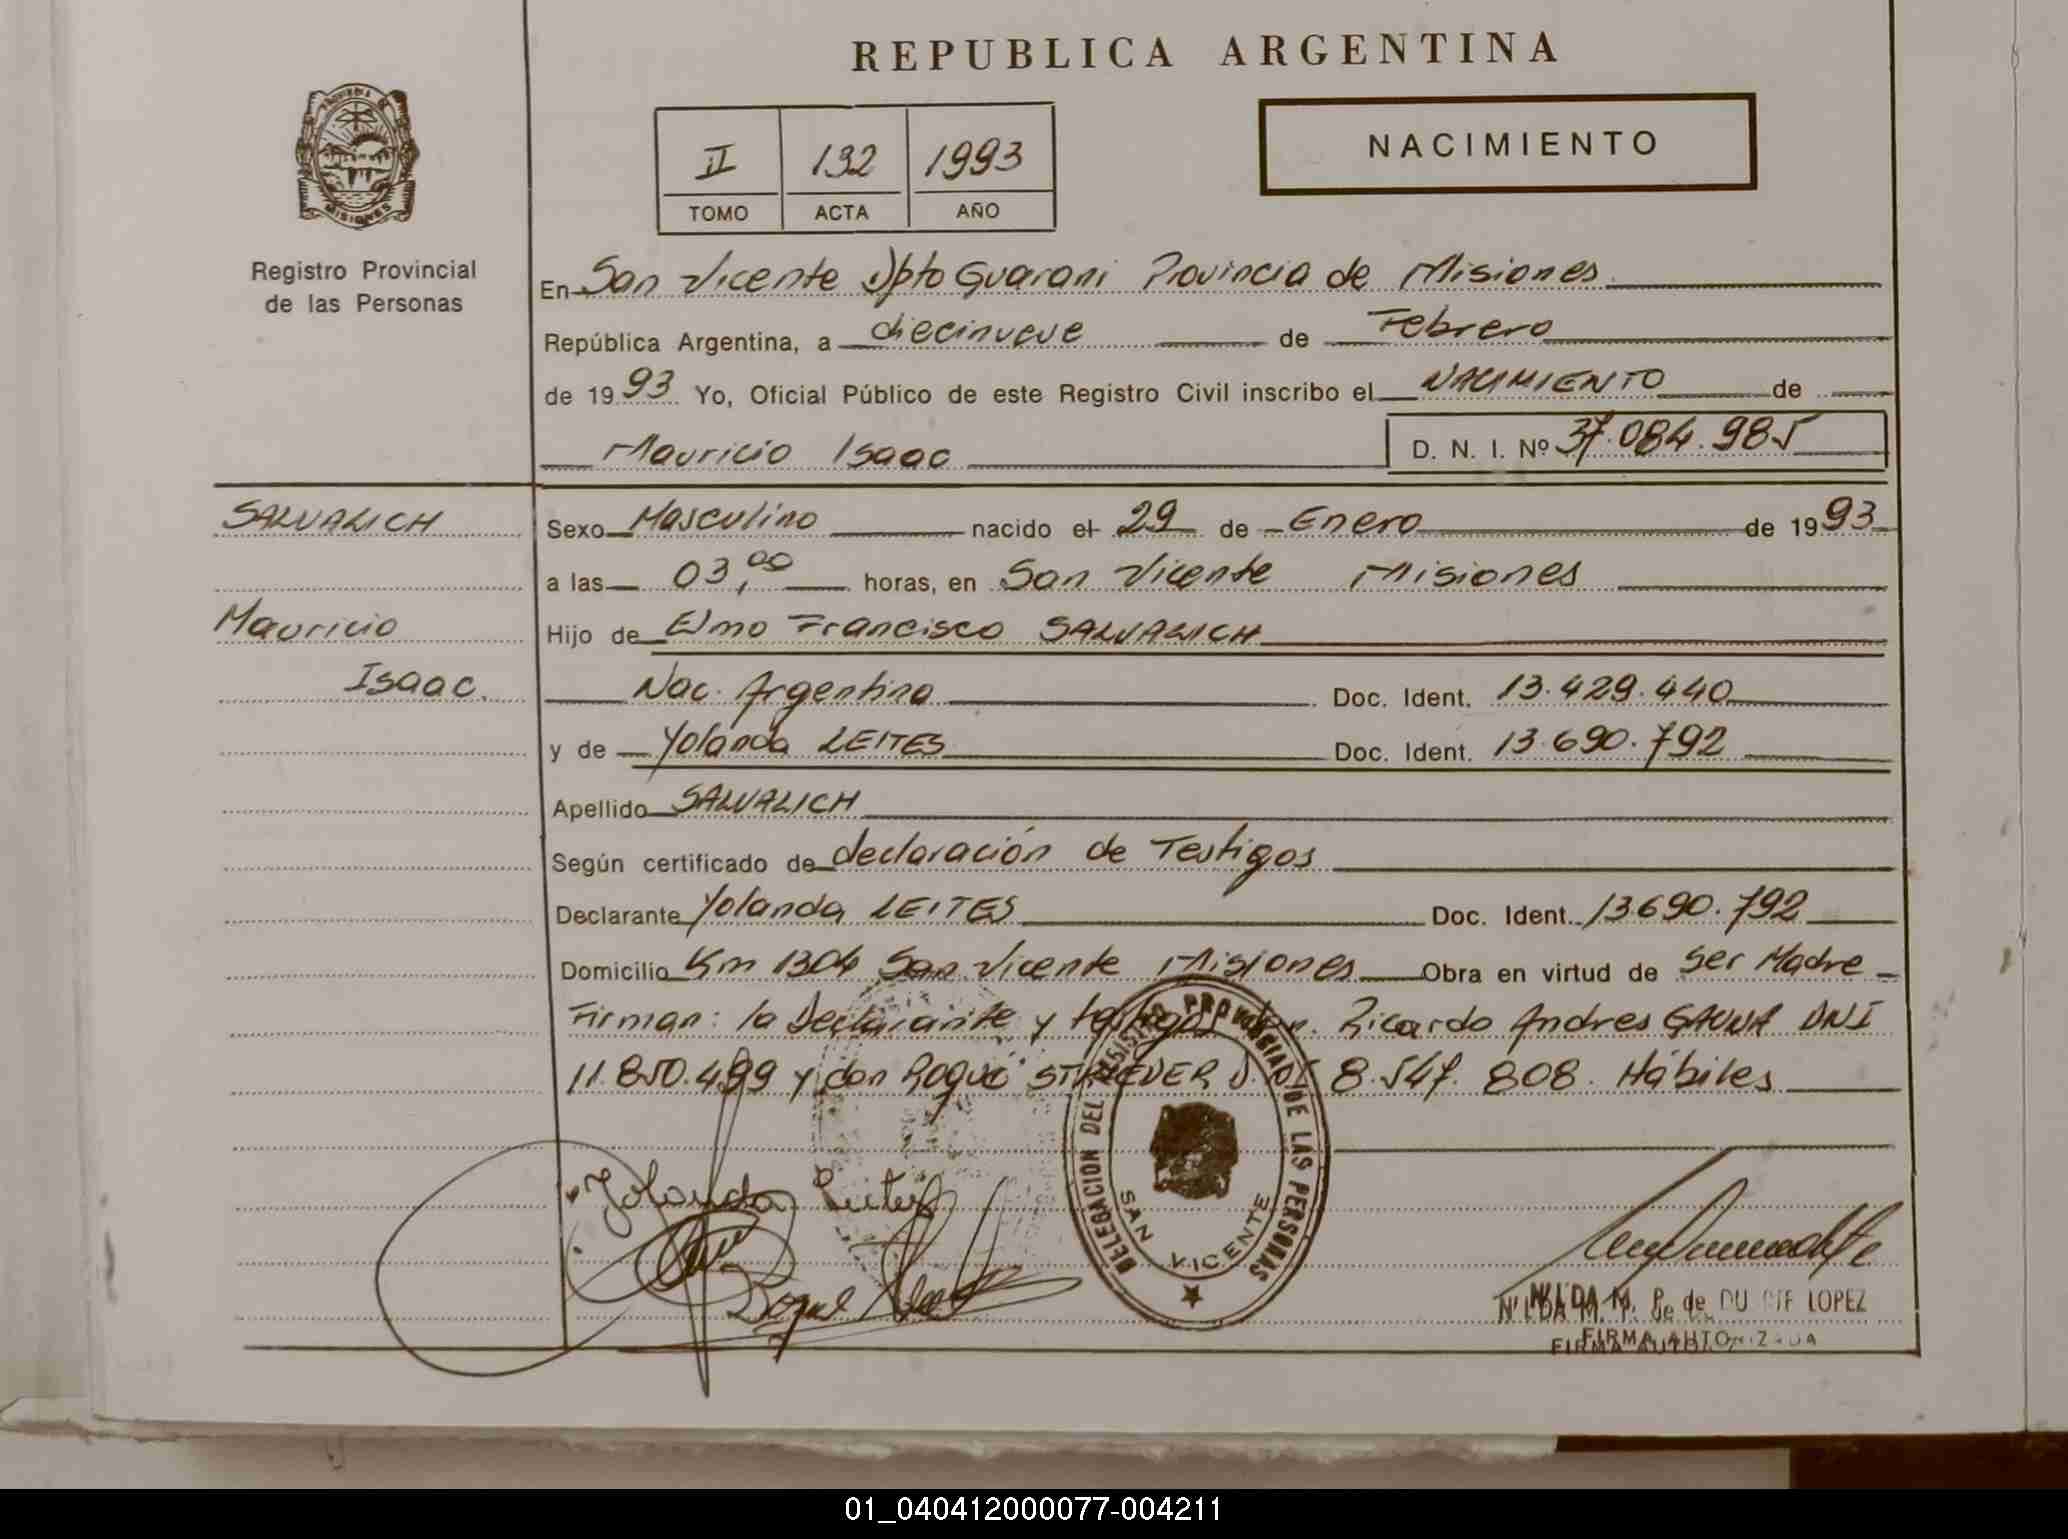 REPUBLICA ARGENTINA
PROVINCIA DE
MISIONES
Registro Provincial
de las Personas
II 132 1993
TOMO ACTA AÑO
NACIMIENTO
En San Vicente Dpto Guarani Provincia de Misiones
República Argentina, a diecinueve de Febrero
de 1993 Yo, Oficial Público de este Registro Civil inscribo el NACIMIENTO de
Mauricio Isaac D. N. I. Nº 37.084.985
SALVALICH Sexo Masculino nacido el 29 de Enero de 1993
a las 03,00 horas, en San Vicente Misiones
Mauricio Hijo de Elmo Francisco SALVALICH
Isaac. Nac. Argentina Doc. Ident. 13.429.440
y de Yolanda LEITES Doc. Ident. 13.690.792
Apellido SALVALICH
Según certificado de declaración de Testigos
Declarante Yolanda LEITES Doc. Ident. 13690.792
Domicilio Km 1304 San Vicente Misiones Obra en virtud de Ser Madre
Firman: la Declarante y testigos don. Ricardo Andres GAUNA DNI
11.850.499 y don Roque D.NI 8.547.808. Hábiles
DELEGACION DEL REGISTRO PROVINCIAL DE LAS PERSONAS
SAN VICENTE
Yolanda Leites
Roque
NILDA M. P. de LOPEZ
FIRMA AUTORIZADA
01_040412000077-004211